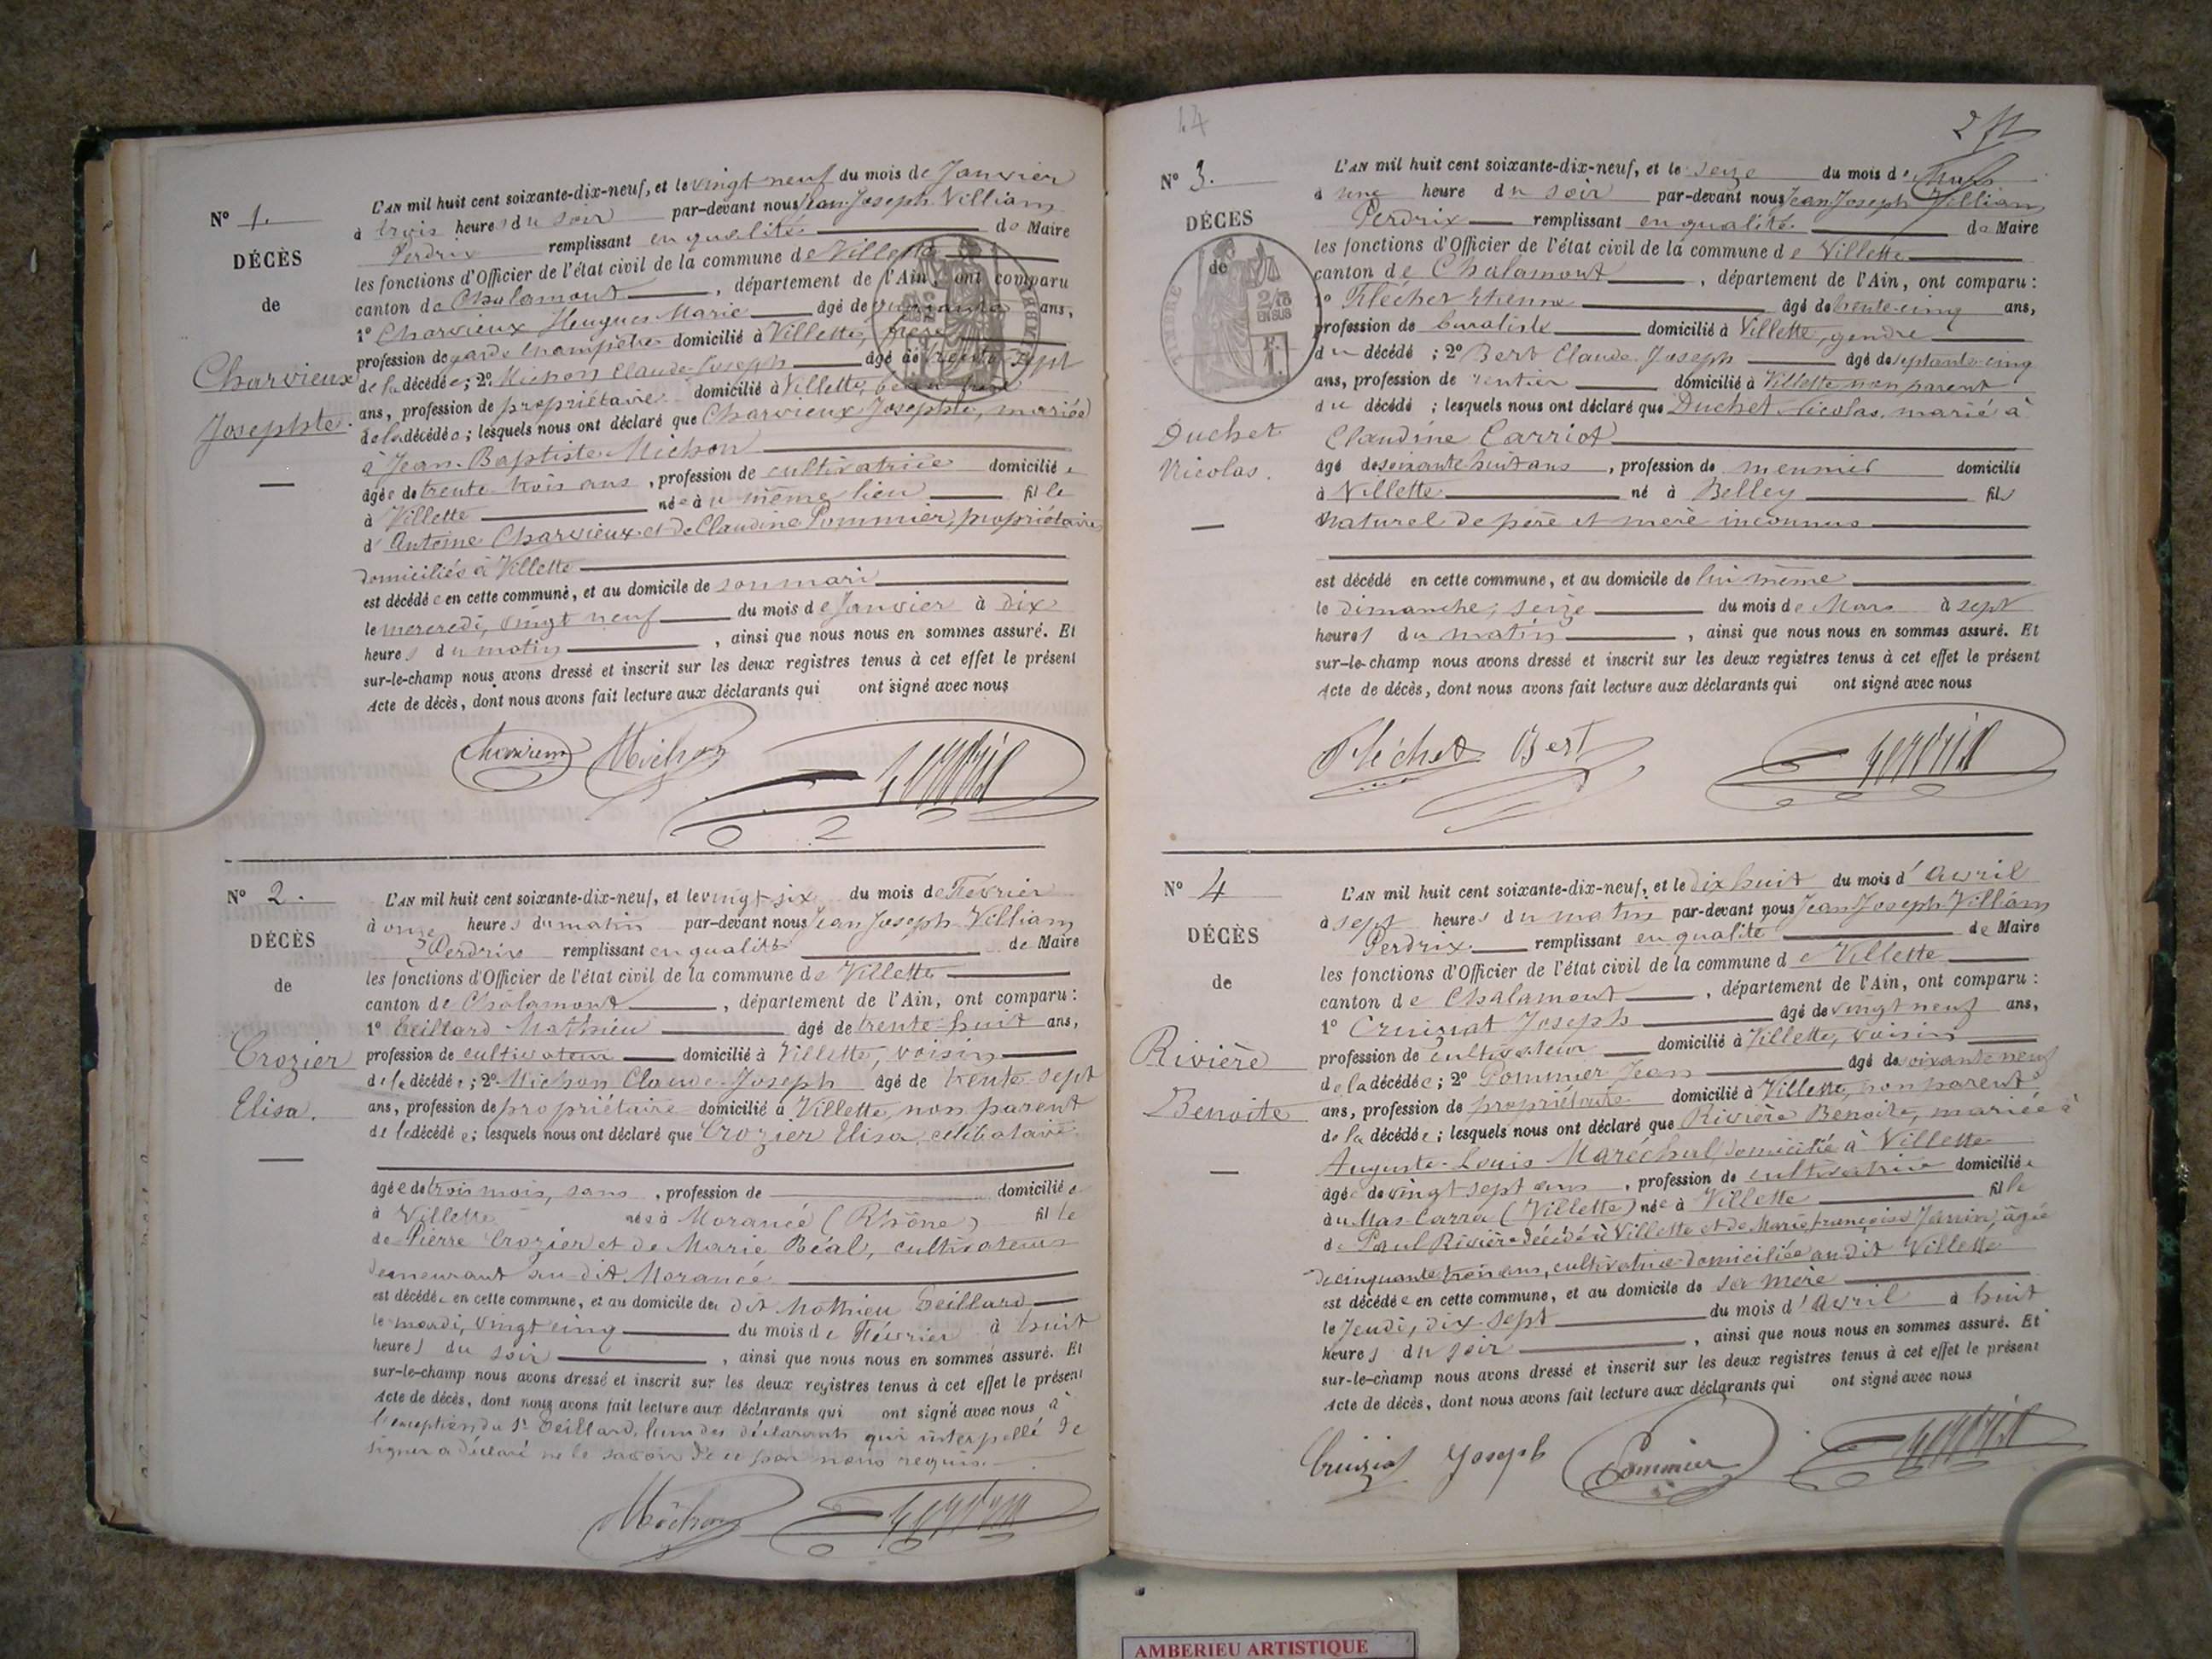 N° 1.
DÉCÈS
de
Charvieux
Josephte.
L'AN mil huit cent soixante-dix-neuf, et le vingt neuf du mois de Janvier
à trois heures du soir par-devant nous Jean Joseph Villiam
Perdrix remplissant en qualité de Maire
les fonctions d'Officier de l'état civil de la commune de Villette
canton de Chalamont, département de l'Ain, ont comparu
1° Charvieux Hugues Marie âgé de quarante ans,
profession de garde champêtre domicilié à Villette, frère
de la décédée; 2° Michon Claude Joseph âgé de trente sept
ans, profession de propriétaire domicilié à Villette, beau frère
de la décédée; lesquels nous ont déclaré que Charvieux Josephte, mariée
à Jean-Baptiste Michon
âgée de trente trois ans, profession de cultivatrice domiciliée
à Villette née à u même lieu fille
d'Antoine Charvieux et de Claudine Pommier, propriétaires
domiciliés à Villette
est décédée en cette commune, et au domicile de son mari
le mercredi, vingt neuf du mois de Janvier à dix
heures du matin, ainsi que nous nous en sommes assuré. Et
sur-le-champ nous avons dressé et inscrit sur les deux registres tenus à cet effet le présent
Acte de décès, dont nous avons fait lecture aux déclarants qui ont signé avec nous
Charvieux Michon Perdrix
N° 2.
DÉCÈS
de
Crozier
Elisa.
L'AN mil huit cent soixante-dix-neuf, et le vingt-six du mois de Février
à onze heures du matin par-devant nous Jean Joseph Villiam
Perdrix remplissant en qualité de Maire
les fonctions d'Officier de l'état civil de la commune de Villette
canton de Chalamont, département de l'Ain, ont comparu :
1° Teillard Mathieu âgé de trente huit ans,
profession de cultivateur domicilié à Villette, voisin
de la décédée; 2° Michon Claude Joseph âgé de trente sept
ans, profession de propriétaire domicilié à Villette, non parent
de la décédée; lesquels nous ont déclaré que Crozier Elisa, célibataire
âgée de trois mois, sans, profession de domiciliée
à Villette née à Morancé (Rhône) fille
de Pierre Crozier et de Marie Béal, cultivateurs
demeurant au dit Morancé
est décédée en cette commune, et au domicile du dit Mathieu Teillard
le mardi, vingt cinq du mois de Février à huit
heures du soir, ainsi que nous nous en sommes assuré. Et
sur-le-champ nous avons dressé et inscrit sur les deux registres tenus à cet effet le présent
Acte de décès, dont nous avons fait lecture aux déclarants qui ont signé avec nous à
l'exception du Sr Teillard, l'un des déclarants qui interpellé de
signer a déclaré ne le savoir de ce par nous requis.
Michon Perdrix
14
2
N° 3.
DÉCÈS
de
Duchet
Nicolas.
L'AN mil huit cent soixante-dix-neuf, et le seize du mois de Mars
à une heure du soir par-devant nous Jean Joseph Villiam
Perdrix remplissant en qualité de Maire
les fonctions d'Officier de l'état civil de la commune de Villette
canton de Chalamont, département de l'Ain, ont comparu :
1° Fléchet Etienne âgé de trente-cinq ans,
profession de buraliste domicilié à Villette, gendre
du décédé ; 2° Bert Claude Joseph âgé de septante-cinq
ans, profession de rentier domicilié à Villette non parent
du décédé ; lesquels nous ont déclaré que Duchet Nicolas, marié à
Claudine Carriot
âgé de soixante-huit ans, profession de meunier domicilié
à Villette né à Belley fils
naturel de père et mère inconnus
est décédé en cette commune, et au domicile de lui même
le dimanche, seize du mois de Mars à sept
heures du matin, ainsi que nous nous en sommes assuré. Et
sur-le-champ nous avons dressé et inscrit sur les deux registres tenus à cet effet le présent
Acte de décès, dont nous avons fait lecture aux déclarants qui ont signé avec nous
Fléchet Bert Perdrix
N° 4
DÉCÈS
de
Rivière
Benoite
L'AN mil huit cent soixante-dix-neuf, et le dix huit du mois d'Avril
à sept heures du matin par-devant nous Jean Joseph Villiam
Perdrix. remplissant en qualité de Maire
les fonctions d'Officier de l'état civil de la commune de Villette
canton de Chalamont, département de l'Ain, ont comparu :
1° Cruiziat Joseph âgé de vingt neuf ans,
profession de cultivateur domicilié à Villette, voisin
de la décédée; 2° Pommier Jean âgé de soixante neuf
ans, profession de propriétaire domicilié à Villette, non parent
de la décédée; lesquels nous ont déclaré que Rivière Benoite, mariée à
Auguste-Louis Maréchal, domicilié à Villette
âgée de vingt sept ans, profession de cultivatrice domiciliée
au Mas-Carra (Villette) née à Villette fille
de Paul Rivière décédé à Villette et de Marie françoise Janin, âgée
de cinquante trois ans, cultivatrice domiciliée au dit Villette
est décédée en cette commune, et au domicile de sa mère
le Jeudi, dix-sept du mois d'Avril à huit
heures du soir, ainsi que nous nous en sommes assuré. Et
sur-le-champ nous avons dressé et inscrit sur les deux registres tenus à cet effet le présent
Acte de décès, dont nous avons fait lecture aux déclarants qui ont signé avec nous
Cruiziat Joseph Pommier Perdrix
AMBERIEU ARTISTIQUE